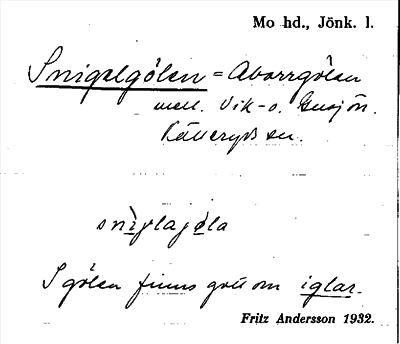 Mo hd., Jönk. l.
Snigelgölen = Aborrgölen
mell. Vik- o. Gusjön.
Källeryds sn.
snìgლajøla
I gölen finns gott om iglar.
Fritz Andersson 1932.